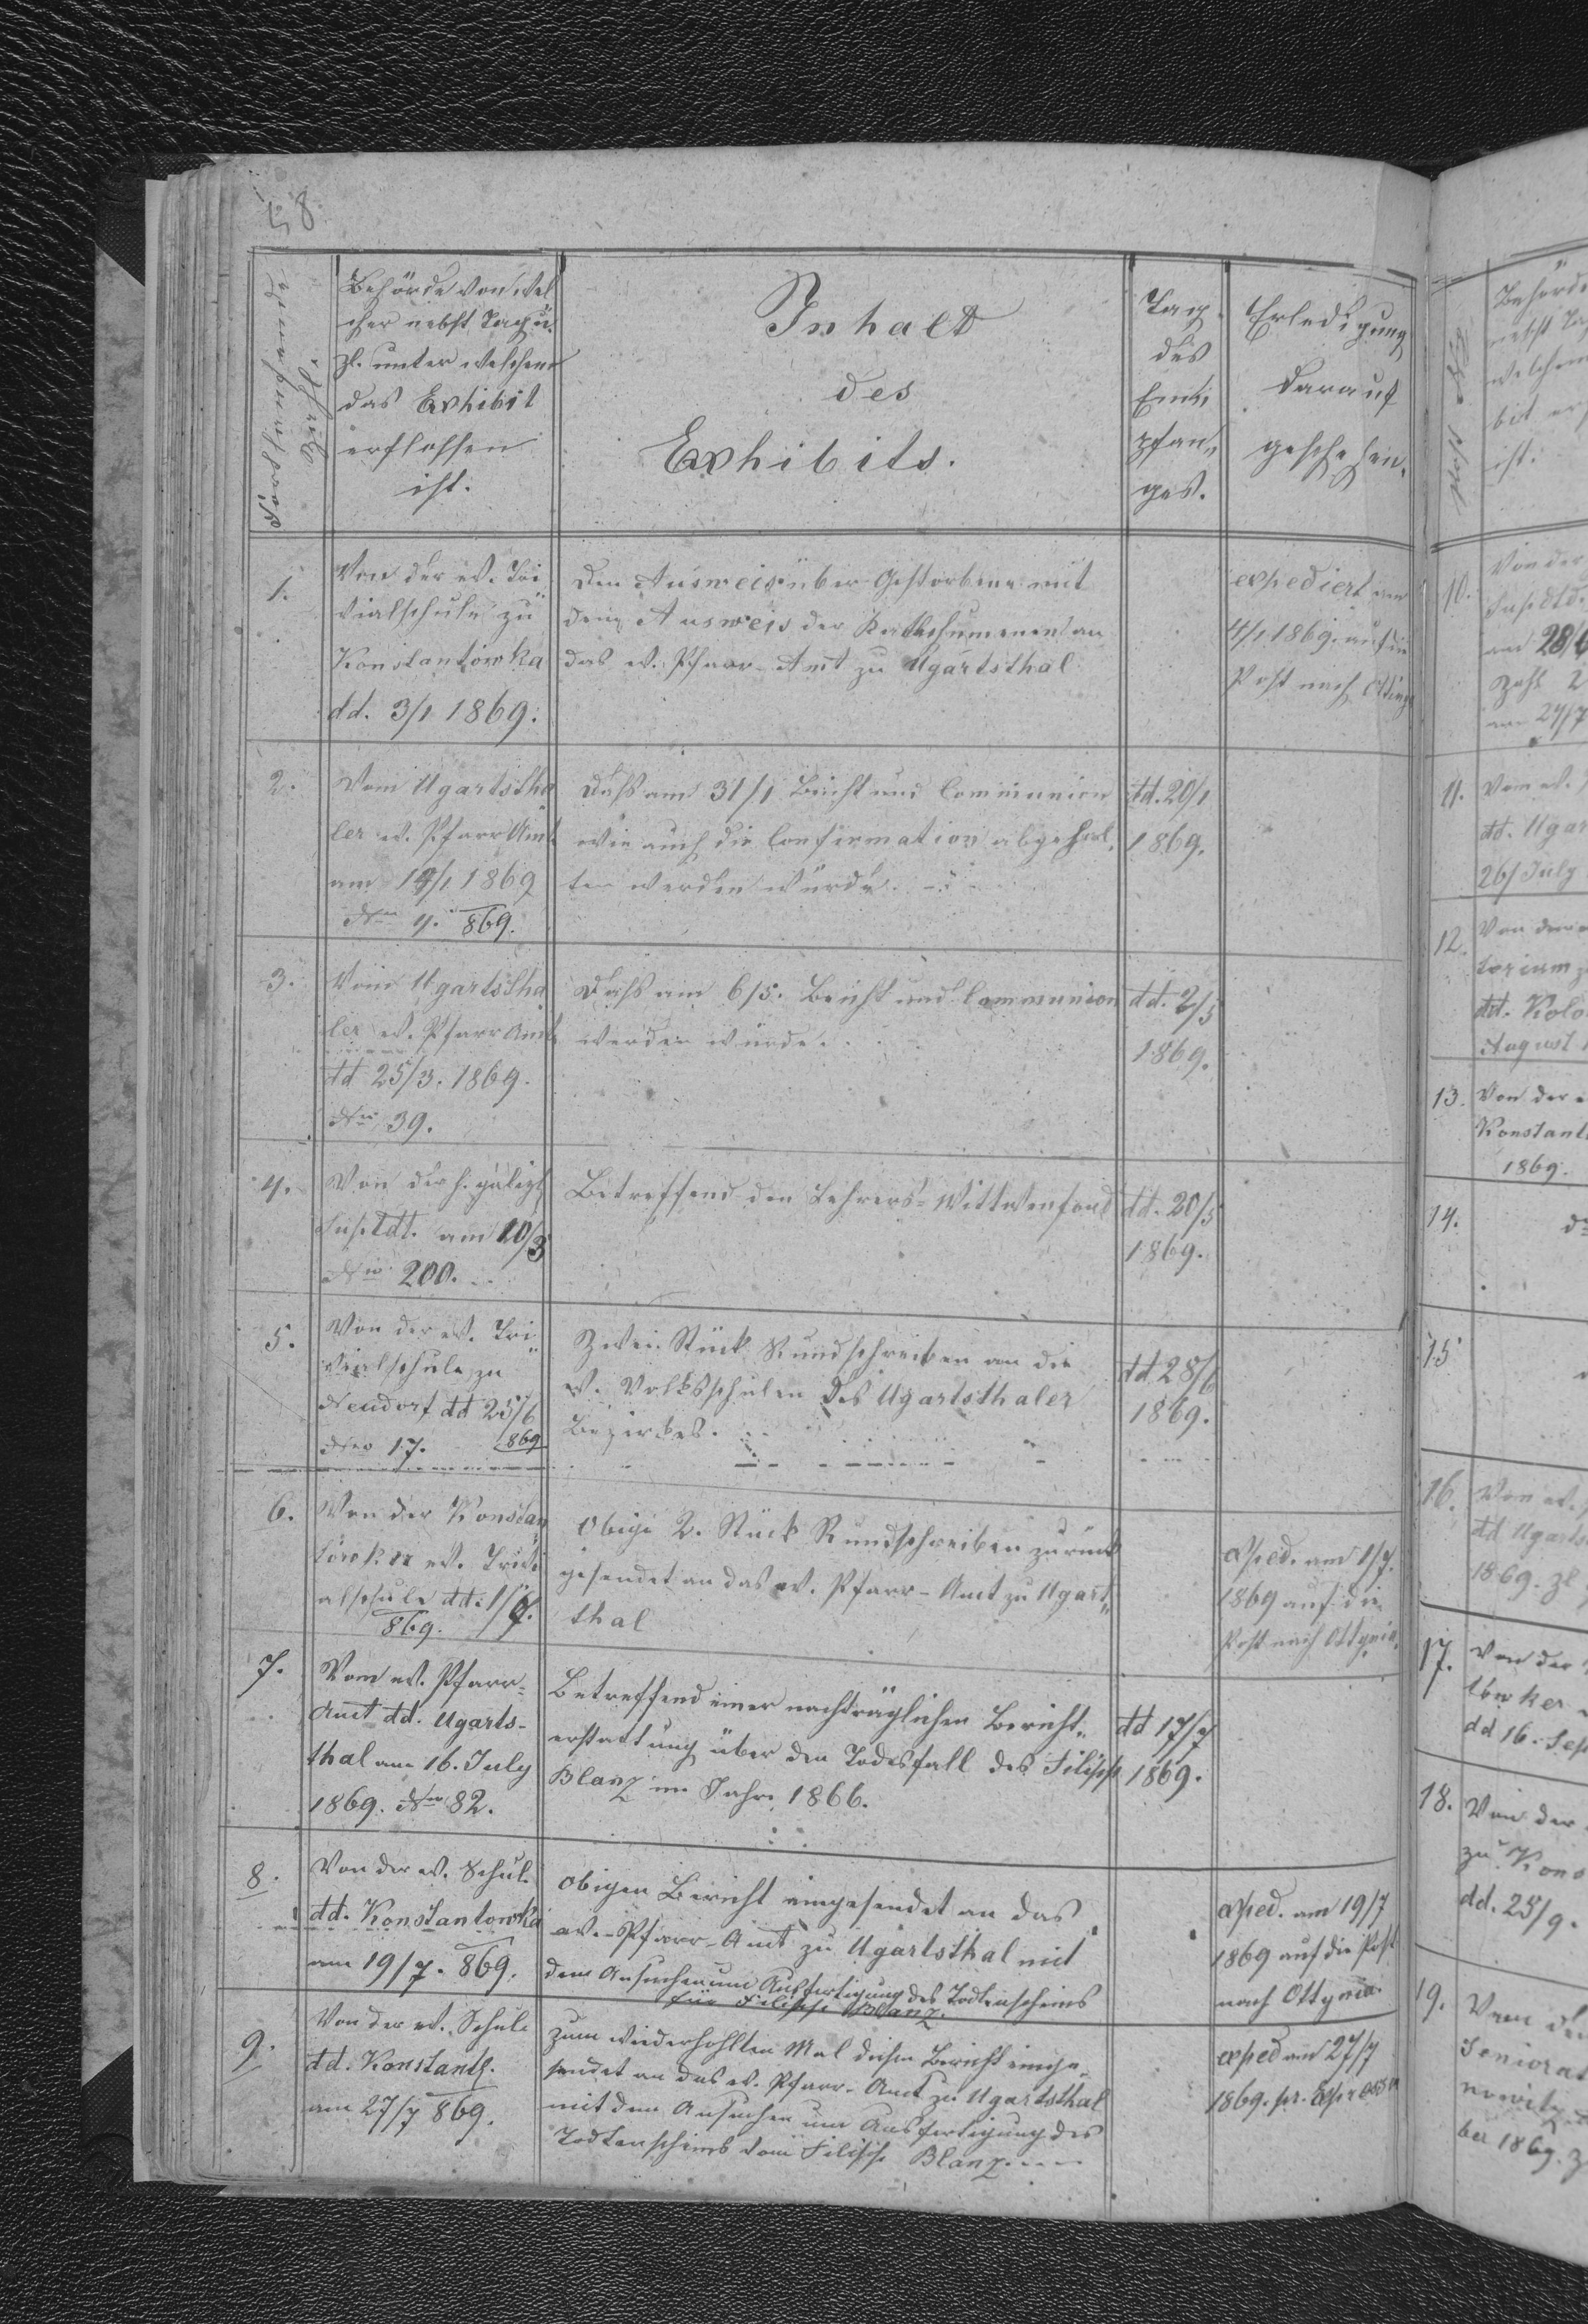 58.
Behörde von wel
cher nebst Tag u.
zl. unter welchem
das Exhibit
erflossen
ist.
Inhalt
des
Exhibits.
Tag
des
Em„
pfan„
ges.
Erledigung
darauf
geschehen.
1.
Von der ev. Tri
vialschule zu
Konstantówka
dd. 3/1 1869.
Den Ausweis über Gestorbene mit
dem Ausweis der Katechumenen an
das ev. Pfarr-Amt zu Ugartsthal
expediert am
4/1 1869. auf die
Post nach
2.
Vom Ugartstha
ler ev. Pfarr Amt
am 14/1 1869
Nro 4. 869.
Daß am 31/1 Beicht und Communion
wie auch die Confirmation abgehal„
ten werden würde.
dd. 20/1
1869.
3.
Vom Ugartstha
ler ev. Pfarr Amt
dd 25/3. 1869.
Nro 39.
Daß am 6/5. Beicht und Communion
werden würde.
dd. 2/5
1869.
4.
Von der h. galiz.
Supdtdt. am 10/3
Nro 200.
Betreffend den Lehrers-Wittwenfond
dd. 20/5
1869.
5.
Von der ev. Tri„
vialschule zu
Neudorf dd 25/6
Nro 17. 869
Zwei Stück Rundschreiben an die
ev. Volksschulen des Ugartsthaler
Bezirkes.
dd 28/6
1869.
6.
Von der Konstan
tówker ev. Trivi
alschule dd. 1/7.
869.
Obige 2. Stück Rundschreiben zurück
gesendet an das ev. Pfarr-Amt zu Ugart„
thal
exped. am 1/7.
1869 auf die
Post nach Ottynia.
7.
Vom ev. Pfarr-
Amt dd. Ugarts-
thal am 16. July
1869. Nro 82.
Betreffend einer nachträglichen Bericht„
erstattung über den Todesfall des Filipp
Blanz im Jahre 1866.
dd 17/7
1869.
8.
Von der ev. Schul.
dd. Konstantowka
am 19/7. 869.
Obigen Bericht eingesendet an das
ev.-Pfarr-Amt zu Ugartsthal mit
dem Ansuchen um Ausfertigung des Todtenscheins
für Filipp Blanz.
exped. am 19/7
1869 auf die Post
nach Ottynia.
9.
Von der ev. Schule
dd. Konstantf.
am 27/7 869.
Zum wiederhohlten Mal diesen Bericht einge„
sendet an das ev. Pfarr-Amt zu Ugartsthal
mit dem Ansuchen um Ausfertigung des
Todtenscheins vom Filipp Blanz.
exped am 27/7
1869. pr. Expressen
Behörde
welchem
ist.
10.
Von der
am 28/6
Zahl 2
am 24/7
11.
Vom ev.
dd. Ugar
26/July
12.
Von dem
torium z
dd. Kolo
August
13.
Von der
Konstant
1869.
14.
15
16.
Von ev.
dd Ugarts
1869. zl
17.
Von der
tówker
dd 16. Sep
18.
Von der
zu Kons
dd. 25/9.
19.
Vom
Seniorat
ber 1869. z